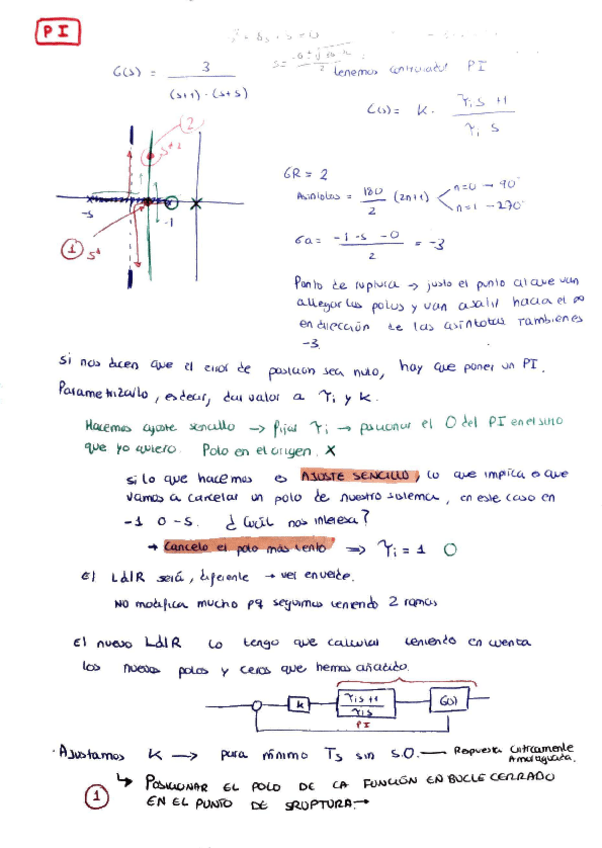 PI
G(s) = 3 / (s+1)·(s+5)
tenemos controlador PI
C(s) = K · τi s +1 / τi s
2
s*2
-5
-1
1
s*
GR = 2
Asíntotas = 180/2 (2n+1) n=0 → 90°
n=1 → 270°
σa = -1-5-0 / 2 = -3
Punto de ruptura → justo el punto al que van
a llegar los polos y van a salir hacia el ∞
en dirección de las asíntotas. También es
-3.
Si nos dicen que el error de posición sea nulo, hay que poner un PI.
Parametrizarlo, es decir, dar valor a τi y K.
Hacemos ajuste sencillo → fijar τi → posicionar el 0 del PI en el sitio
que yo quiero. Polo en el origen. X
si lo que hacemos es AJUSTE SENCILLO, lo que implica es que
vamos a cancelar un polo de nuestro sistema, en este caso en
-1 o -5. ¿Cuál nos interesa?
→ Cancelo el polo más lento ⇒ τi = 1 O
El LdlR será, diferente → ver en verde.
NO modifica mucho pq seguimos teniendo 2 ramas
El nuevo LdlR lo tengo que calcular teniendo en cuenta
los nuevos polos y ceros que hemos añadido.
K
τi s +1 / τi s
G(s)
PI
· Ajustamos K → para mínimo Ts sin S.O. — Respuesta críticamente
Amortiguada.
1 ↳ POSICIONAR EL POLO DE LA FUNCIÓN EN BUCLE CERRADO
EN EL PUNTO DE SRUPTURA. →